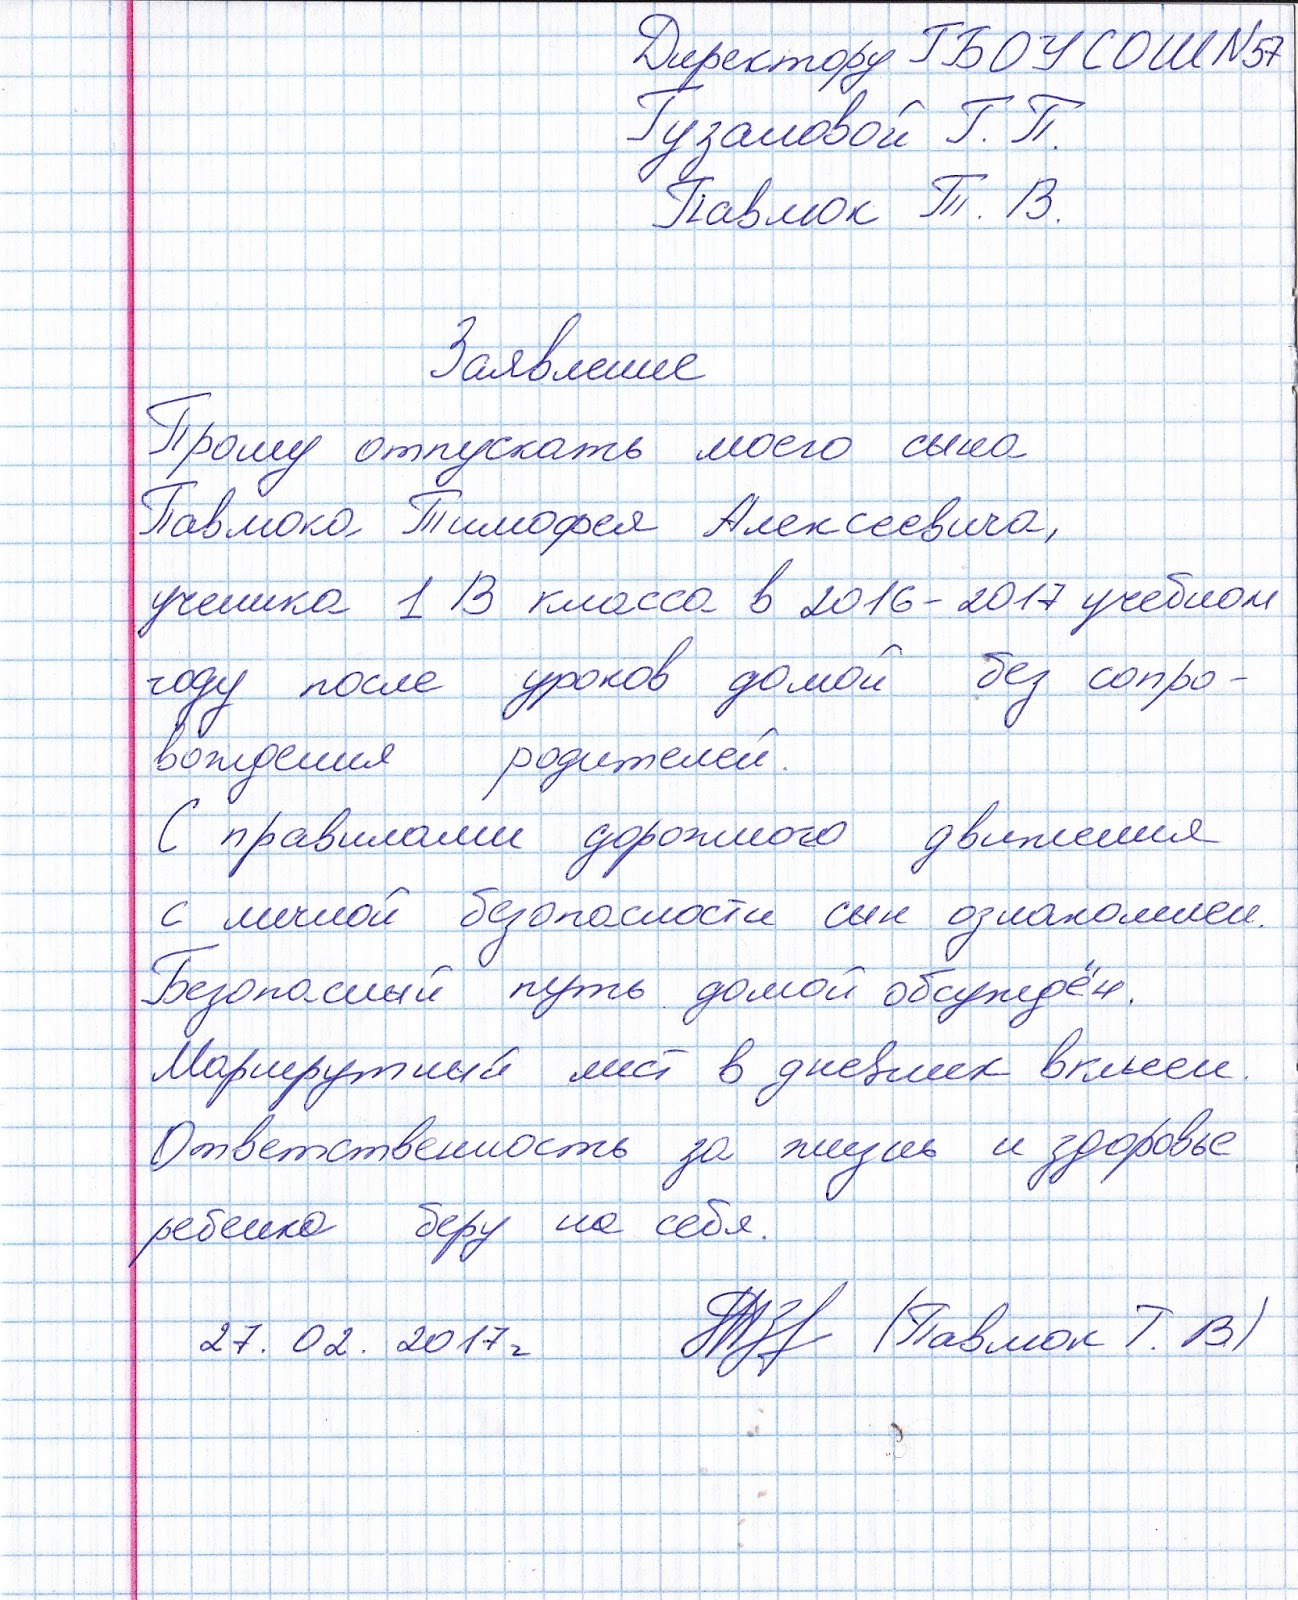 Директору ГБОУ СОШ N57
Гузаловой Г. П.
Павлюк Т. В.
Заявление
Прошу отпускать моего сына
Павлюка Тимофея Алексеевича,
ученика 1 В класса в 2016-2017 учебном
году после уроков домой без сопро-
вождения родителей.
С правилами дорожного движения
с личной безопасности сын ознакомлен.
Безопасный путь домой обсуждён.
Маршрутный лист в дневник вклеен.
Ответственность за жизнь и здоровье
ребенка беру на себя.
27. 02. 2017г (Павлюк Т. В)